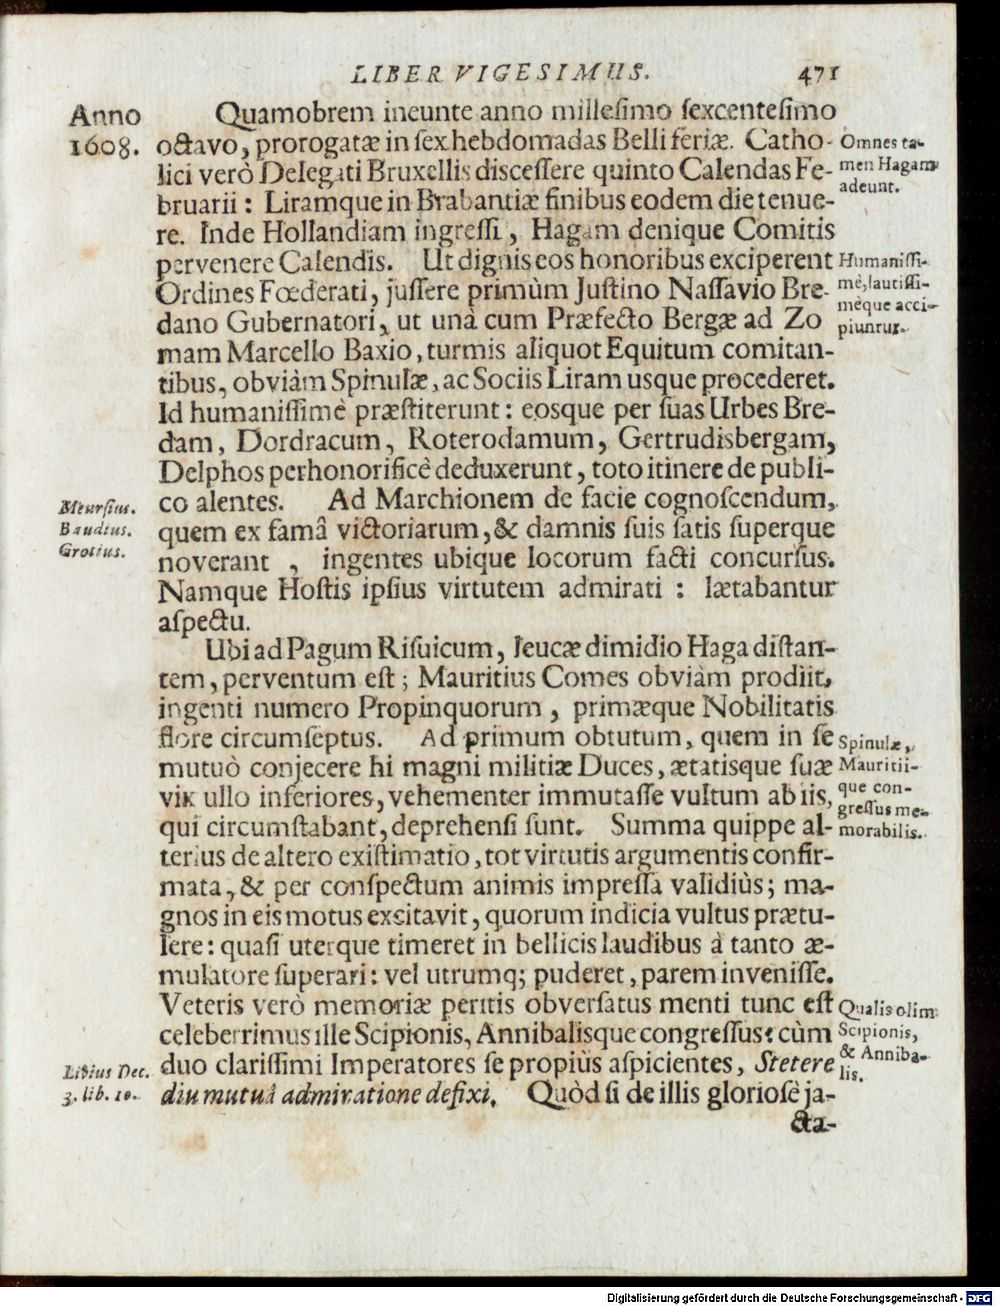 LIBER VIGESIMUS. 471
Anno
1608.
Quamobrem ineunte anno millesimo sexcentesimo
octavo, prorogatæ in sex hebdomadas Belli feriæ. Catho-
lici verò Delegati Bruxellis discessere quinto Calendas Fe-
bruarii: Liramque in Brabantiæ finibus eodem die tenue-
re. Inde Hollandiam ingressi, Hagam denique Comitis
pervenere Calendis. Ut dignis eos honoribus exciperent
Ordines Fœderati, jussere primùm Justino Nassavio Bre-
dano Gubernatori, ut unà cum Præfecto Bergæ ad Zo
mam Marcello Baxio, turmis aliquot Equitum comitan-
tibus, obviàm Spinulæ, ac Sociis Liram usque procederet.
Id humanissimè præstiterunt: eosque per suas Urbes Bre-
dam, Dordracum, Roterodamum, Gertrudisbergam,
Delphos perhonorificè deduxerunt, toto itinere de publi-
co alentes. Ad Marchionem de facie cognoscendum,
quem ex famâ victoriarum, & damnis suis satis superque
noverant, ingentes ubique locorum facti concursus.
Namque Hostis ipsius virtutem admirati: lætabantur
aspectu.
Ubi ad Pagum Risuicum, leucæ dimidio Haga distan-
tem, perventum est; Mauritius Comes obviàm prodiit,
ingenti numero Propinquorum, primæque Nobilitatis
flore circumseptus. Ad primum obtutum, quem in se
mutuò conjecere hi magni militiæ Duces, ætatisque suæ
vix ullo inferiores, vehementer immutasse vultum ab iis,
qui circumstabant, deprehensi sunt. Summa quippe al-
terius de altero existimatio, tot virtutis argumentis confir-
mata, & per conspectum animis impressa validiùs; ma-
gnos in eis motus excitavit, quorum indicia vultus prætu-
lere: quasi uterque timeret in bellicis laudibus à tanto æ-
mulatore superari: vel utrumq; puderet, parem invenisse.
Veteris verò memoriæ peritis obversatus menti tunc est
celeberrimus ille Scipionis, Annibalisque congressus: cùm
duo clarissimi Imperatores se propiùs aspicientes, Stetere
diu mutuâ admiratione defixi. Quòd si de illis gloriosè ja-
cta-
Omnes ta-
men Hagam
adeunt.
Humanissi-
mè, lautissi-
mèque acci-
piuntur.
Meursius.
Baudius.
Grotius.
Spinulæ,
Mauritii-
que con-
gressus me-
morabilis.
Qualis olim
Scipionis,
& Anniba-
lis.
Livius Dec.
3. lib. 10.
Digitalisierung gefördert durch die Deutsche Forschungsgemeinschaft - DFG